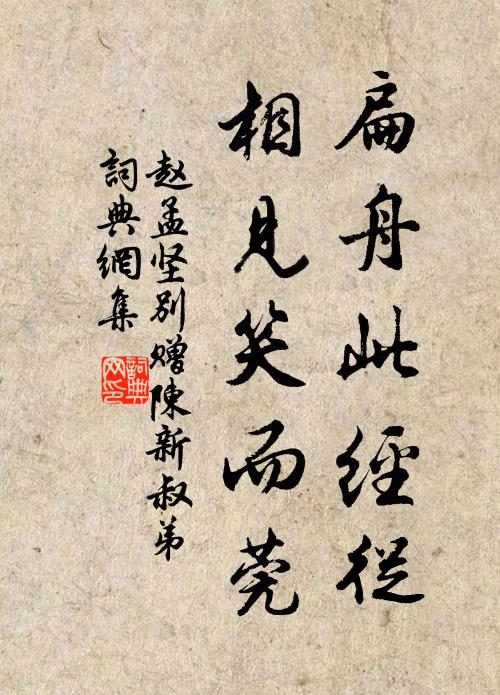 扁舟此經從
相見笑而莞
赵孟坚別贈陳新叔弟
詞典網集
詞典
网印